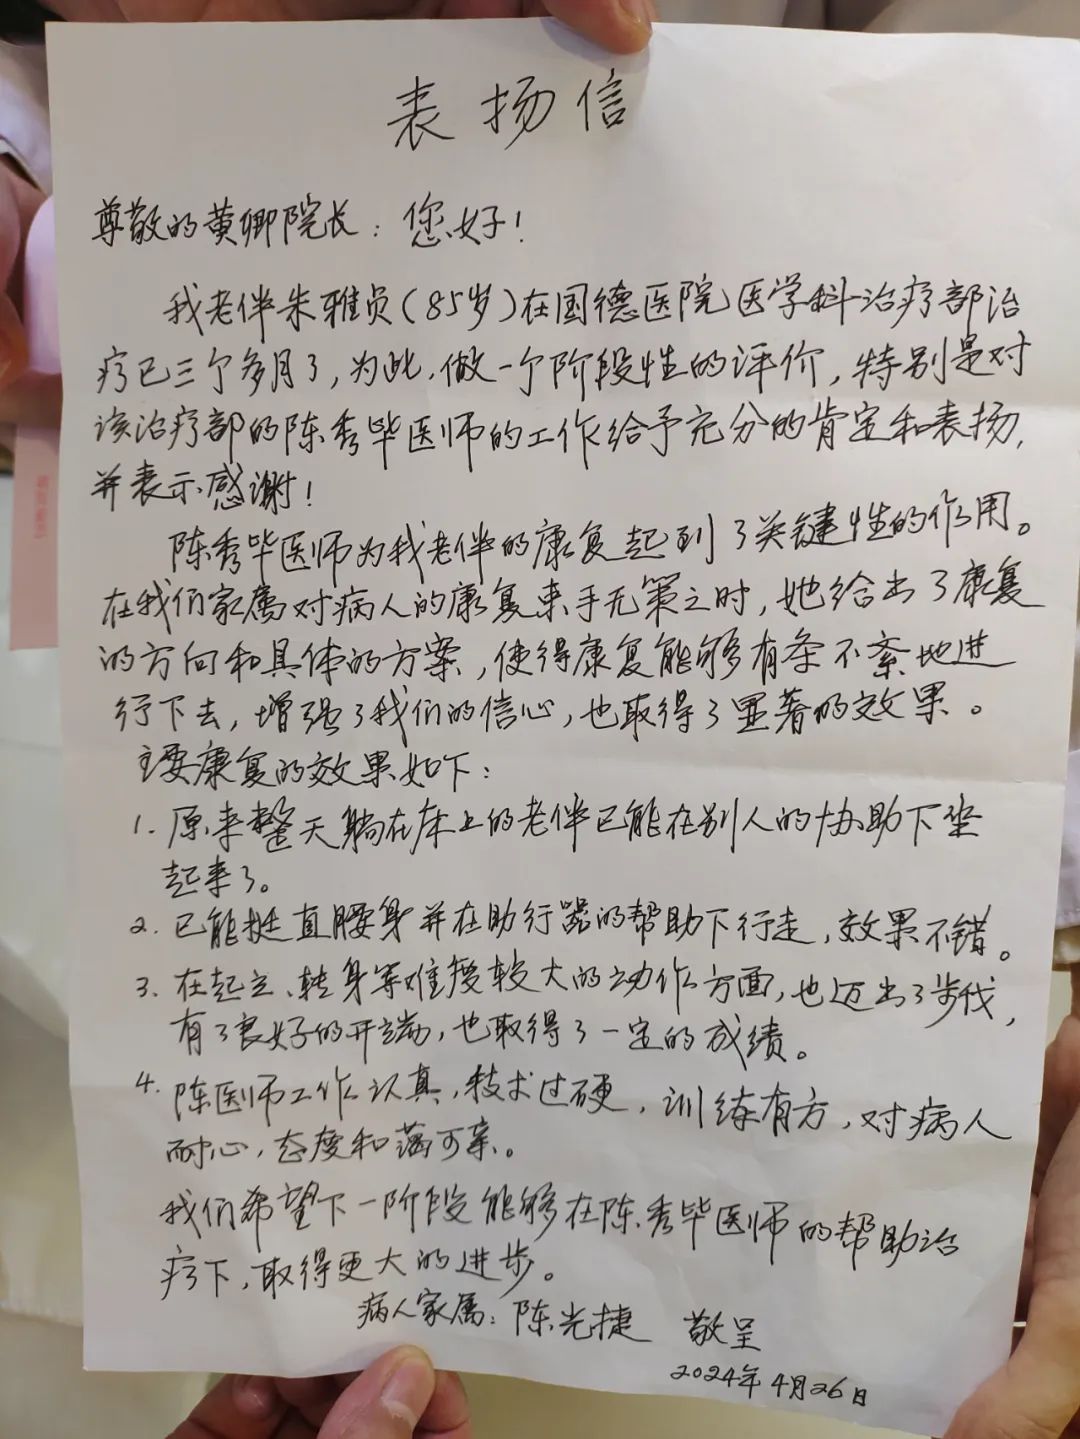 表扬信
尊敬的黄卿院长：您好！
我老伴朱雅贞(85岁)在国德医院医学科治疗部治
疗已三个多月了，为此，做一个阶段性的评价，特别是对
该治疗部的陈秀毕医师的工作给予充分的肯定和表扬，
并表示感谢！
陈秀毕医师为我老伴的康复起到了关键性的作用。
在我们家属对病人的康复束手无策之时，她给出了康复
的方向和具体的方案，使得康复能够有条不紊地进
行下去，增强了我们的信心，也取得了显著的效果。
主要康复的效果如下：
1. 原来整天躺在床上的老伴已能在别人的协助下坐
起来了。
2. 已能挺直腰身并在助行器的帮助下行走，效果不错。
3. 在起立、转身等难度较大的动作方面，也迈出了步伐，
有了良好的开端，也取得了一定的成绩。
4. 陈医师工作认真，技术过硬，训练有方，对病人
耐心，态度和蔼可亲。
我们希望下一阶段能够在陈秀毕医师的帮助治
疗下，取得更大的进步。
病人家属：陈光捷 敬呈
2024年4月26日